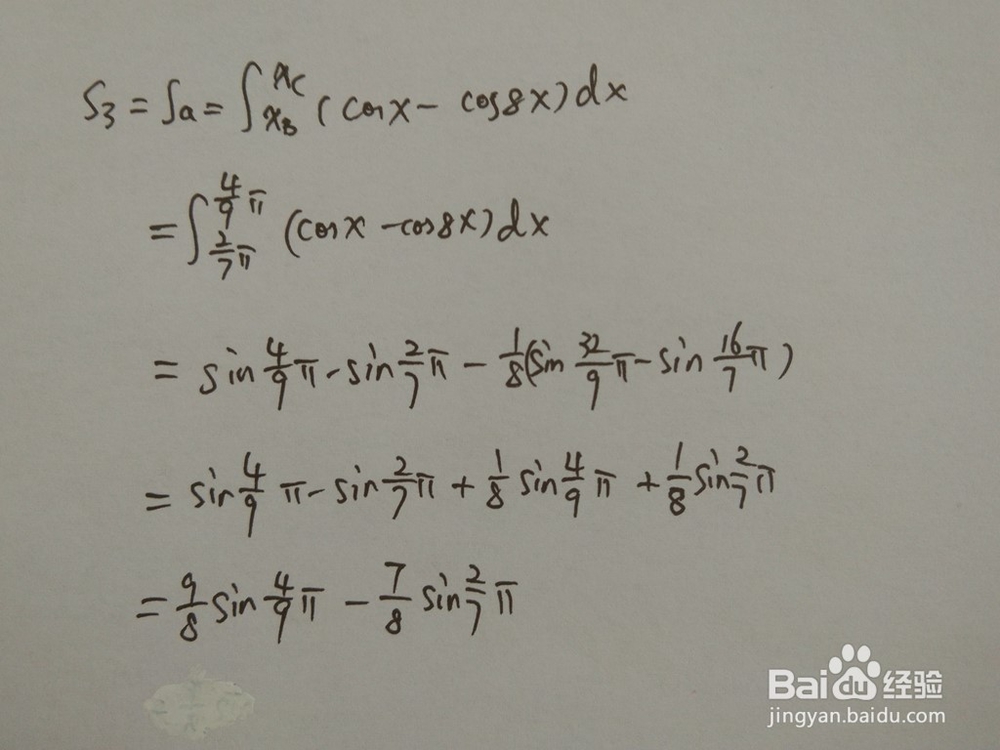 S₃ = Sa = ∫_{x_B}^{x_C} (cosx − cos8x)dx
= ∫_{2/7 π}^{4/9 π} (cosx − cos8x)dx
= sin 4/9 π − sin 2/7 π − 1/8 (sin 32/9 π − sin 16/7 π)
= sin 4/9 π − sin 2/7 π + 1/8 sin 4/9 π + 1/8 sin 2/7 π
= 9/8 sin 4/9 π − 7/8 sin 2/7 π
Baidu经验
jingyan.baidu.com